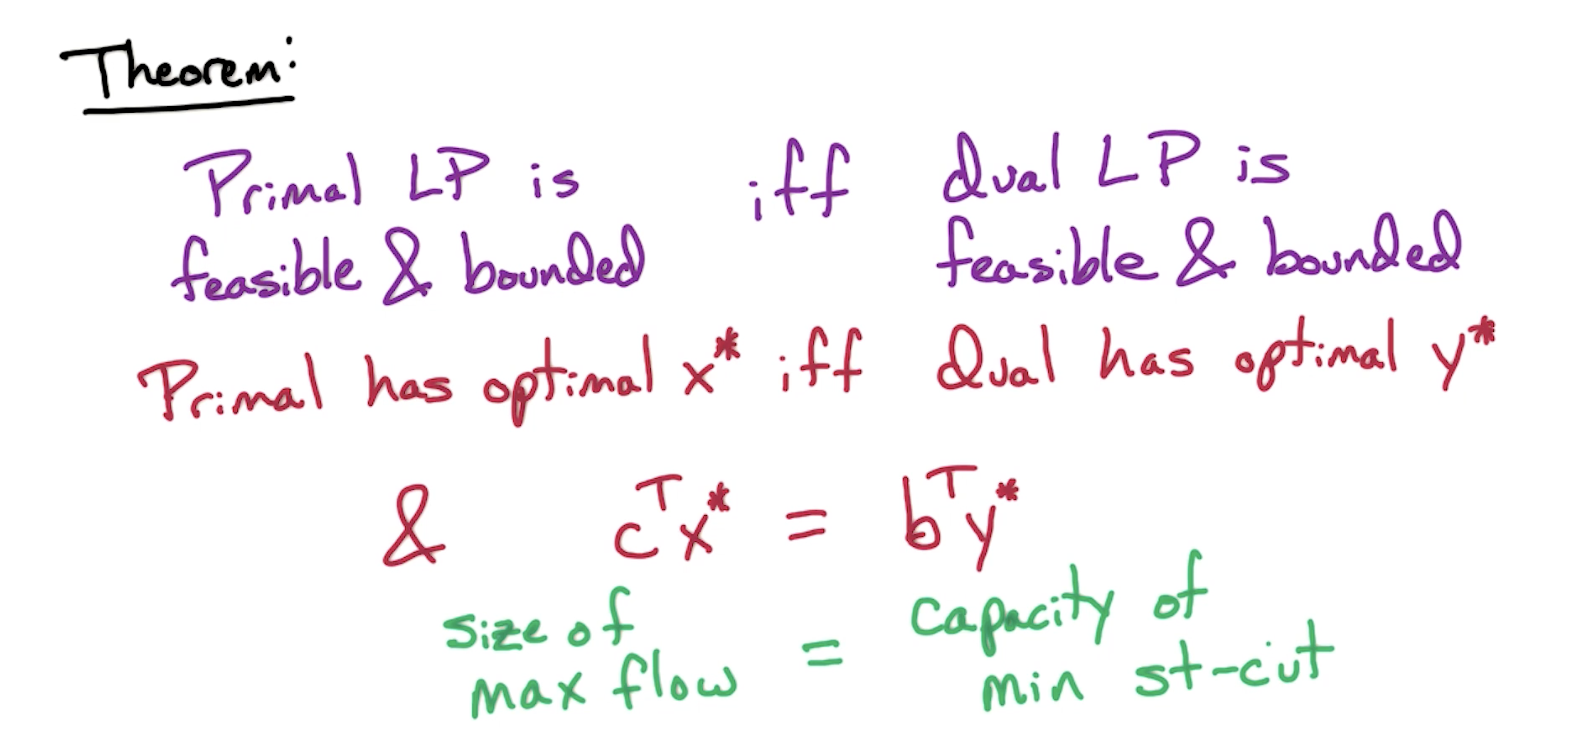 Theorem:
Primal LP is iff dual LP is
feasible & bounded feasible & bounded
Primal has optimal x* iff Dual has optimal y*
& cᵀx* = bᵀy*
size of max flow = capacity of min st-cut